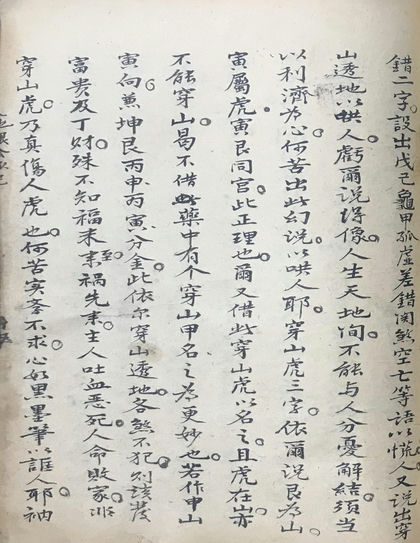 錯二字設出戊己龜甲孤虛差錯関煞空亡等語以慌人又说出穿
山透地以哄人虧爾说得像人生天地间不能与人分憂解結須当
以利濟為心何苦出此幻说以哄人耶穿山虎三字依爾说艮為山
寅屬虎寅艮同宫此正理也爾又借此穿山虎以名之且虎在山亦
不能穿山曷不借此藥中有个穿山甲名之為更妙也若作申山
寅向兼坤艮丙申丙寅分金此依尔穿山透地各煞不犯则該發
富贵及丁财殊不知福未至祸先来主人吐血惡死人命敗家
穿山虎乃真傷人虎也何苦实学不求心如黑墨筆以誰人耶衲